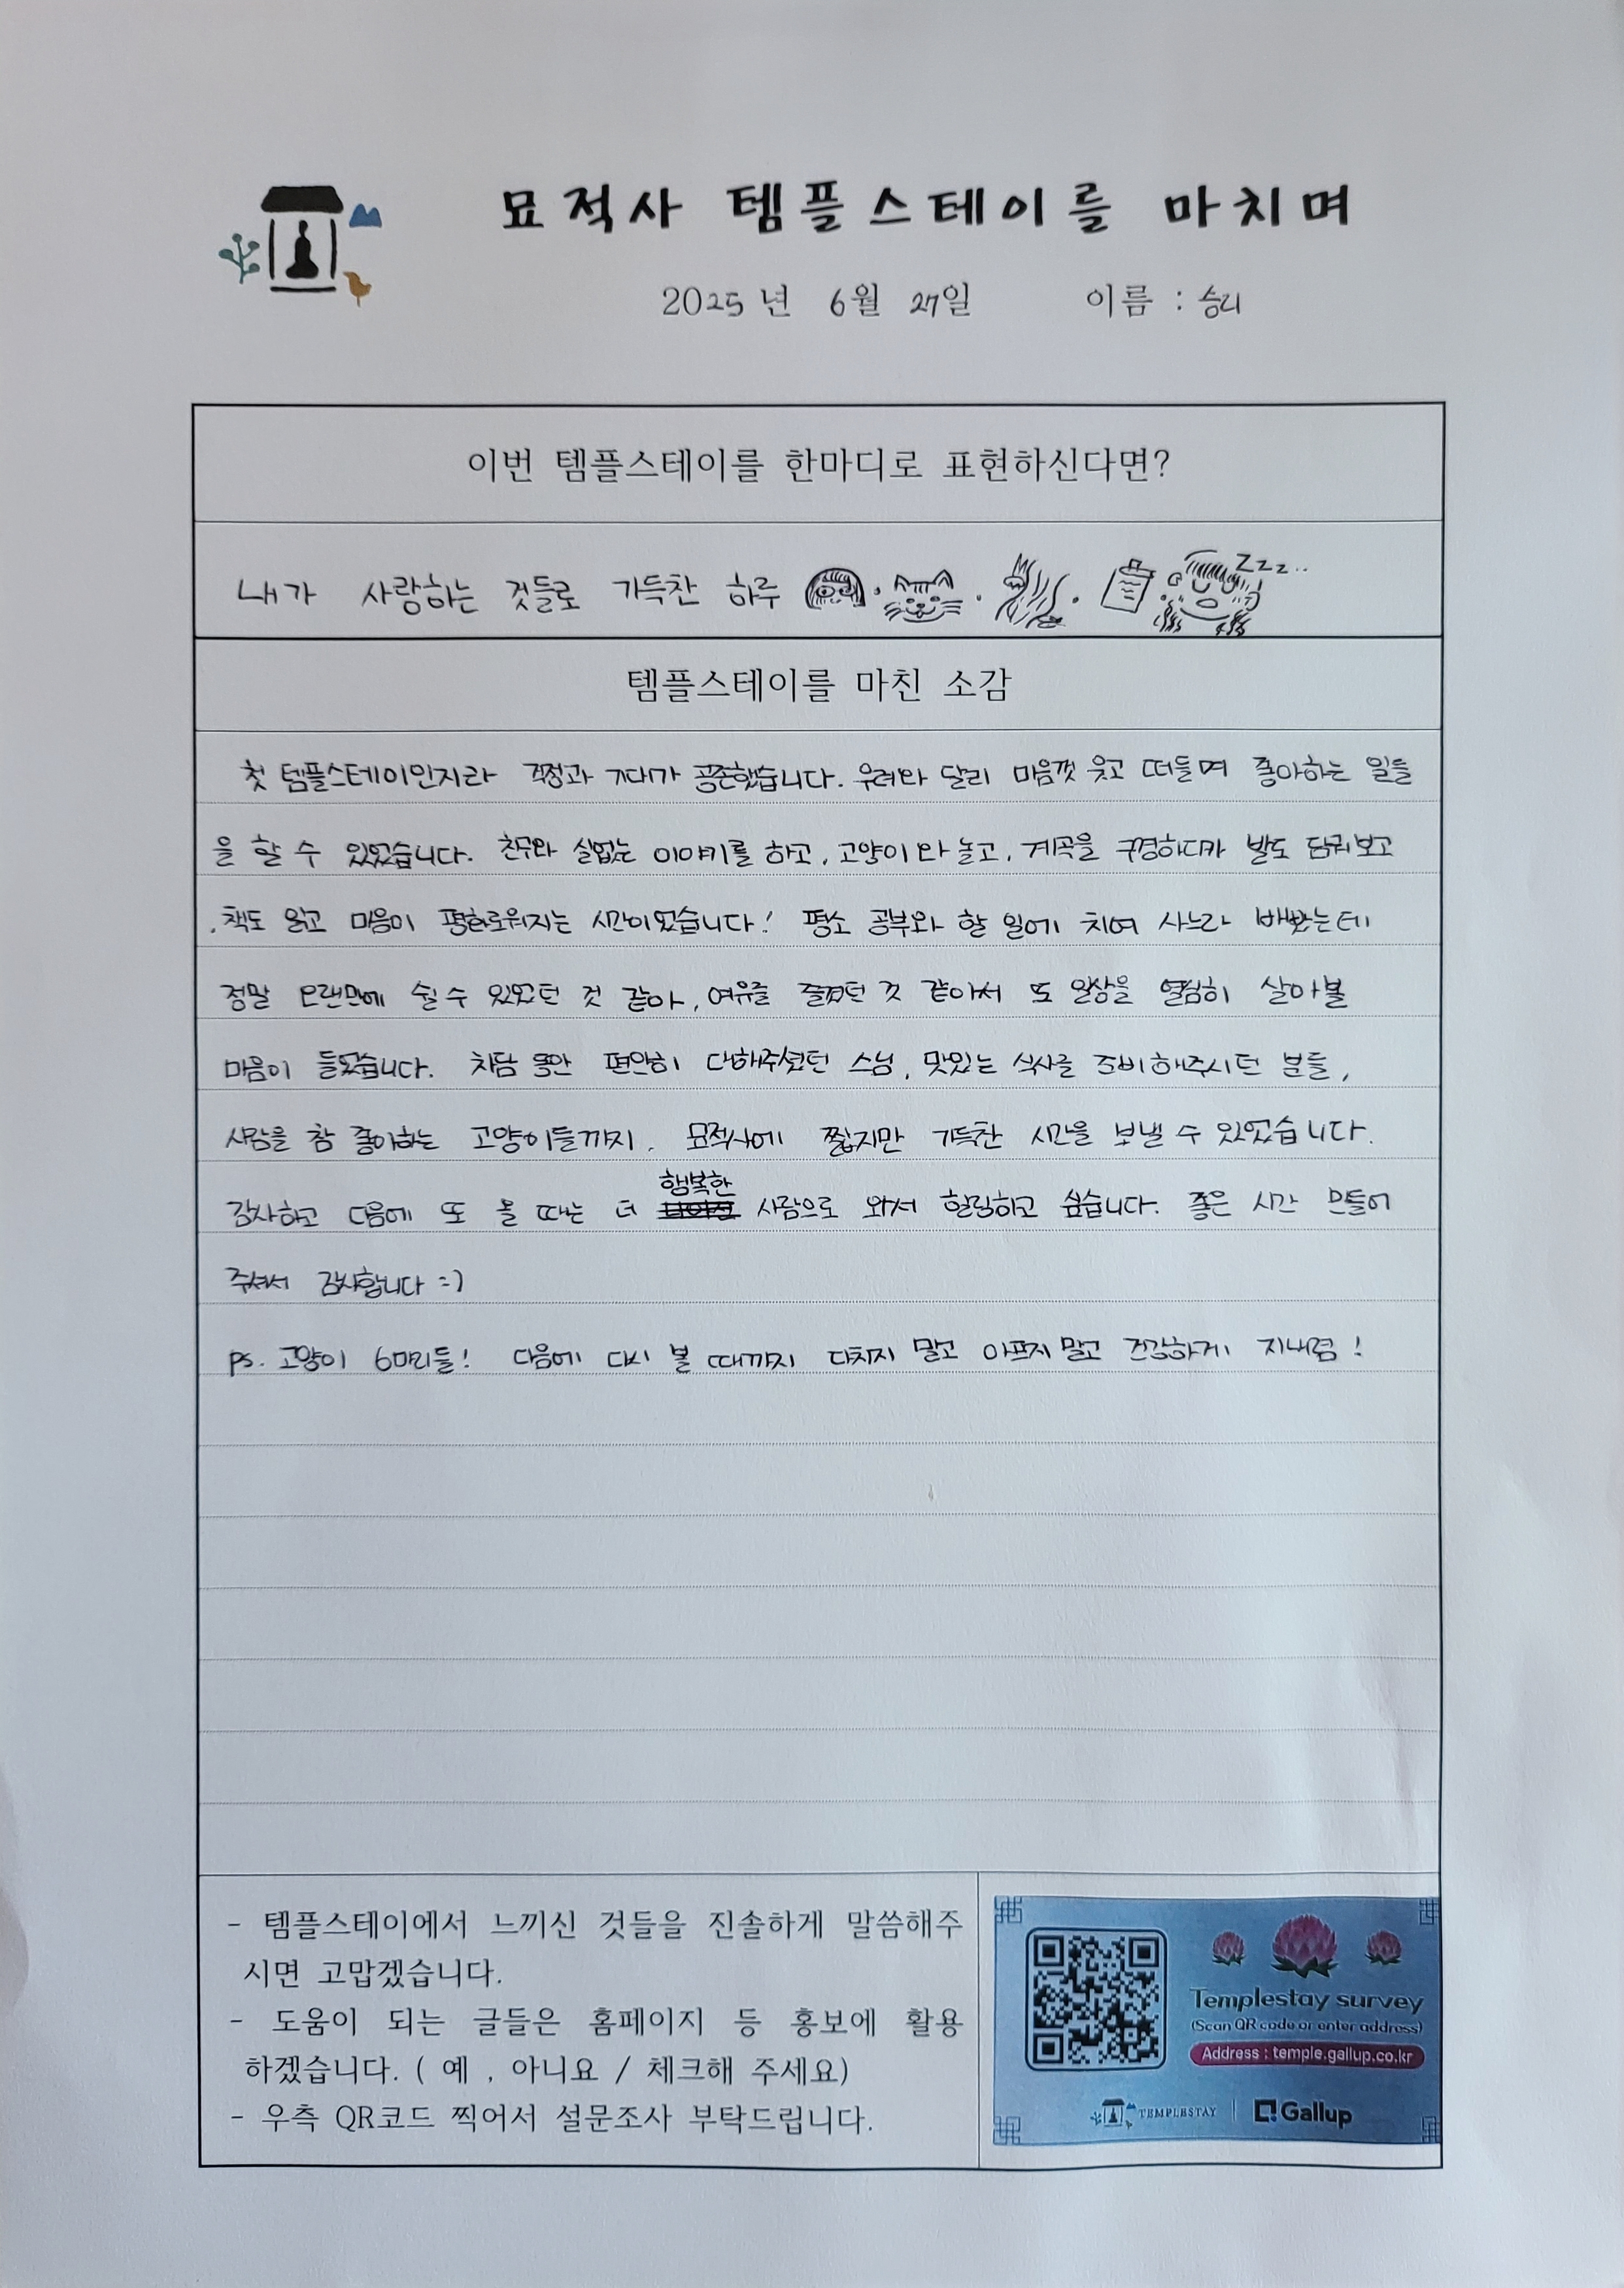 묘적사 템플스테이를 마치며
2025 년 6월 27일 이름 : 승리
이번 템플스테이를 한마디로 표현하신다면?
내가 사랑하는 것들로 가득찬 하루
zzz..
템플스테이를 마친 소감
첫 템플스테이인지라 걱정과 기대가 공존했습니다. 우려와 달리 마음껏 웃고 떠들며 좋아하는 일들
을 할 수 있었습니다. 친구와 실없는 이야기를 하고, 고양이와 놀고, 계곡을 구경하다가 발도 담궈보고
, 책도 읽고 마음이 평화로워지는 시간이었습니다! 평소 공부와 할 일에 치여 사느라 바빴는데
정말 오랜만에 쉴 수 있었던 것 같아, 여유를 즐겼던 것 같아서 또 일상을 열심히 살아볼
마음이 들었습니다. 차담 동안 편안히 대해주셨던 스님, 맛있는 식사를 준비해주시던 분들,
사람을 참 좋아하는 고양이들까지. 묘적사에 짧지만 가득찬 시간을 보낼 수 있었습니다.
행복한
감사하고 다음에 또 올 때는 더 사람으로 와서 힐링하고 싶습니다. 좋은 시간 만들어
주셔서 감사합니다 =)
ps. 고양이 6마리들! 다음에 다시 볼 때까지 다치지 말고 아프지 말고 건강하게 지내렴!
- 템플스테이에서 느끼신 것들을 진솔하게 말씀해주
시면 고맙겠습니다.
- 도움이 되는 글들은 홈페이지 등 홍보에 활용
하겠습니다. ( 예 , 아니요 / 체크해 주세요)
- 우측 QR코드 찍어서 설문조사 부탁드립니다.
Templestay survey
(Scan QR code or enter address)
Address : temple.gallup.co.kr
TEMPLESTAY Gallup